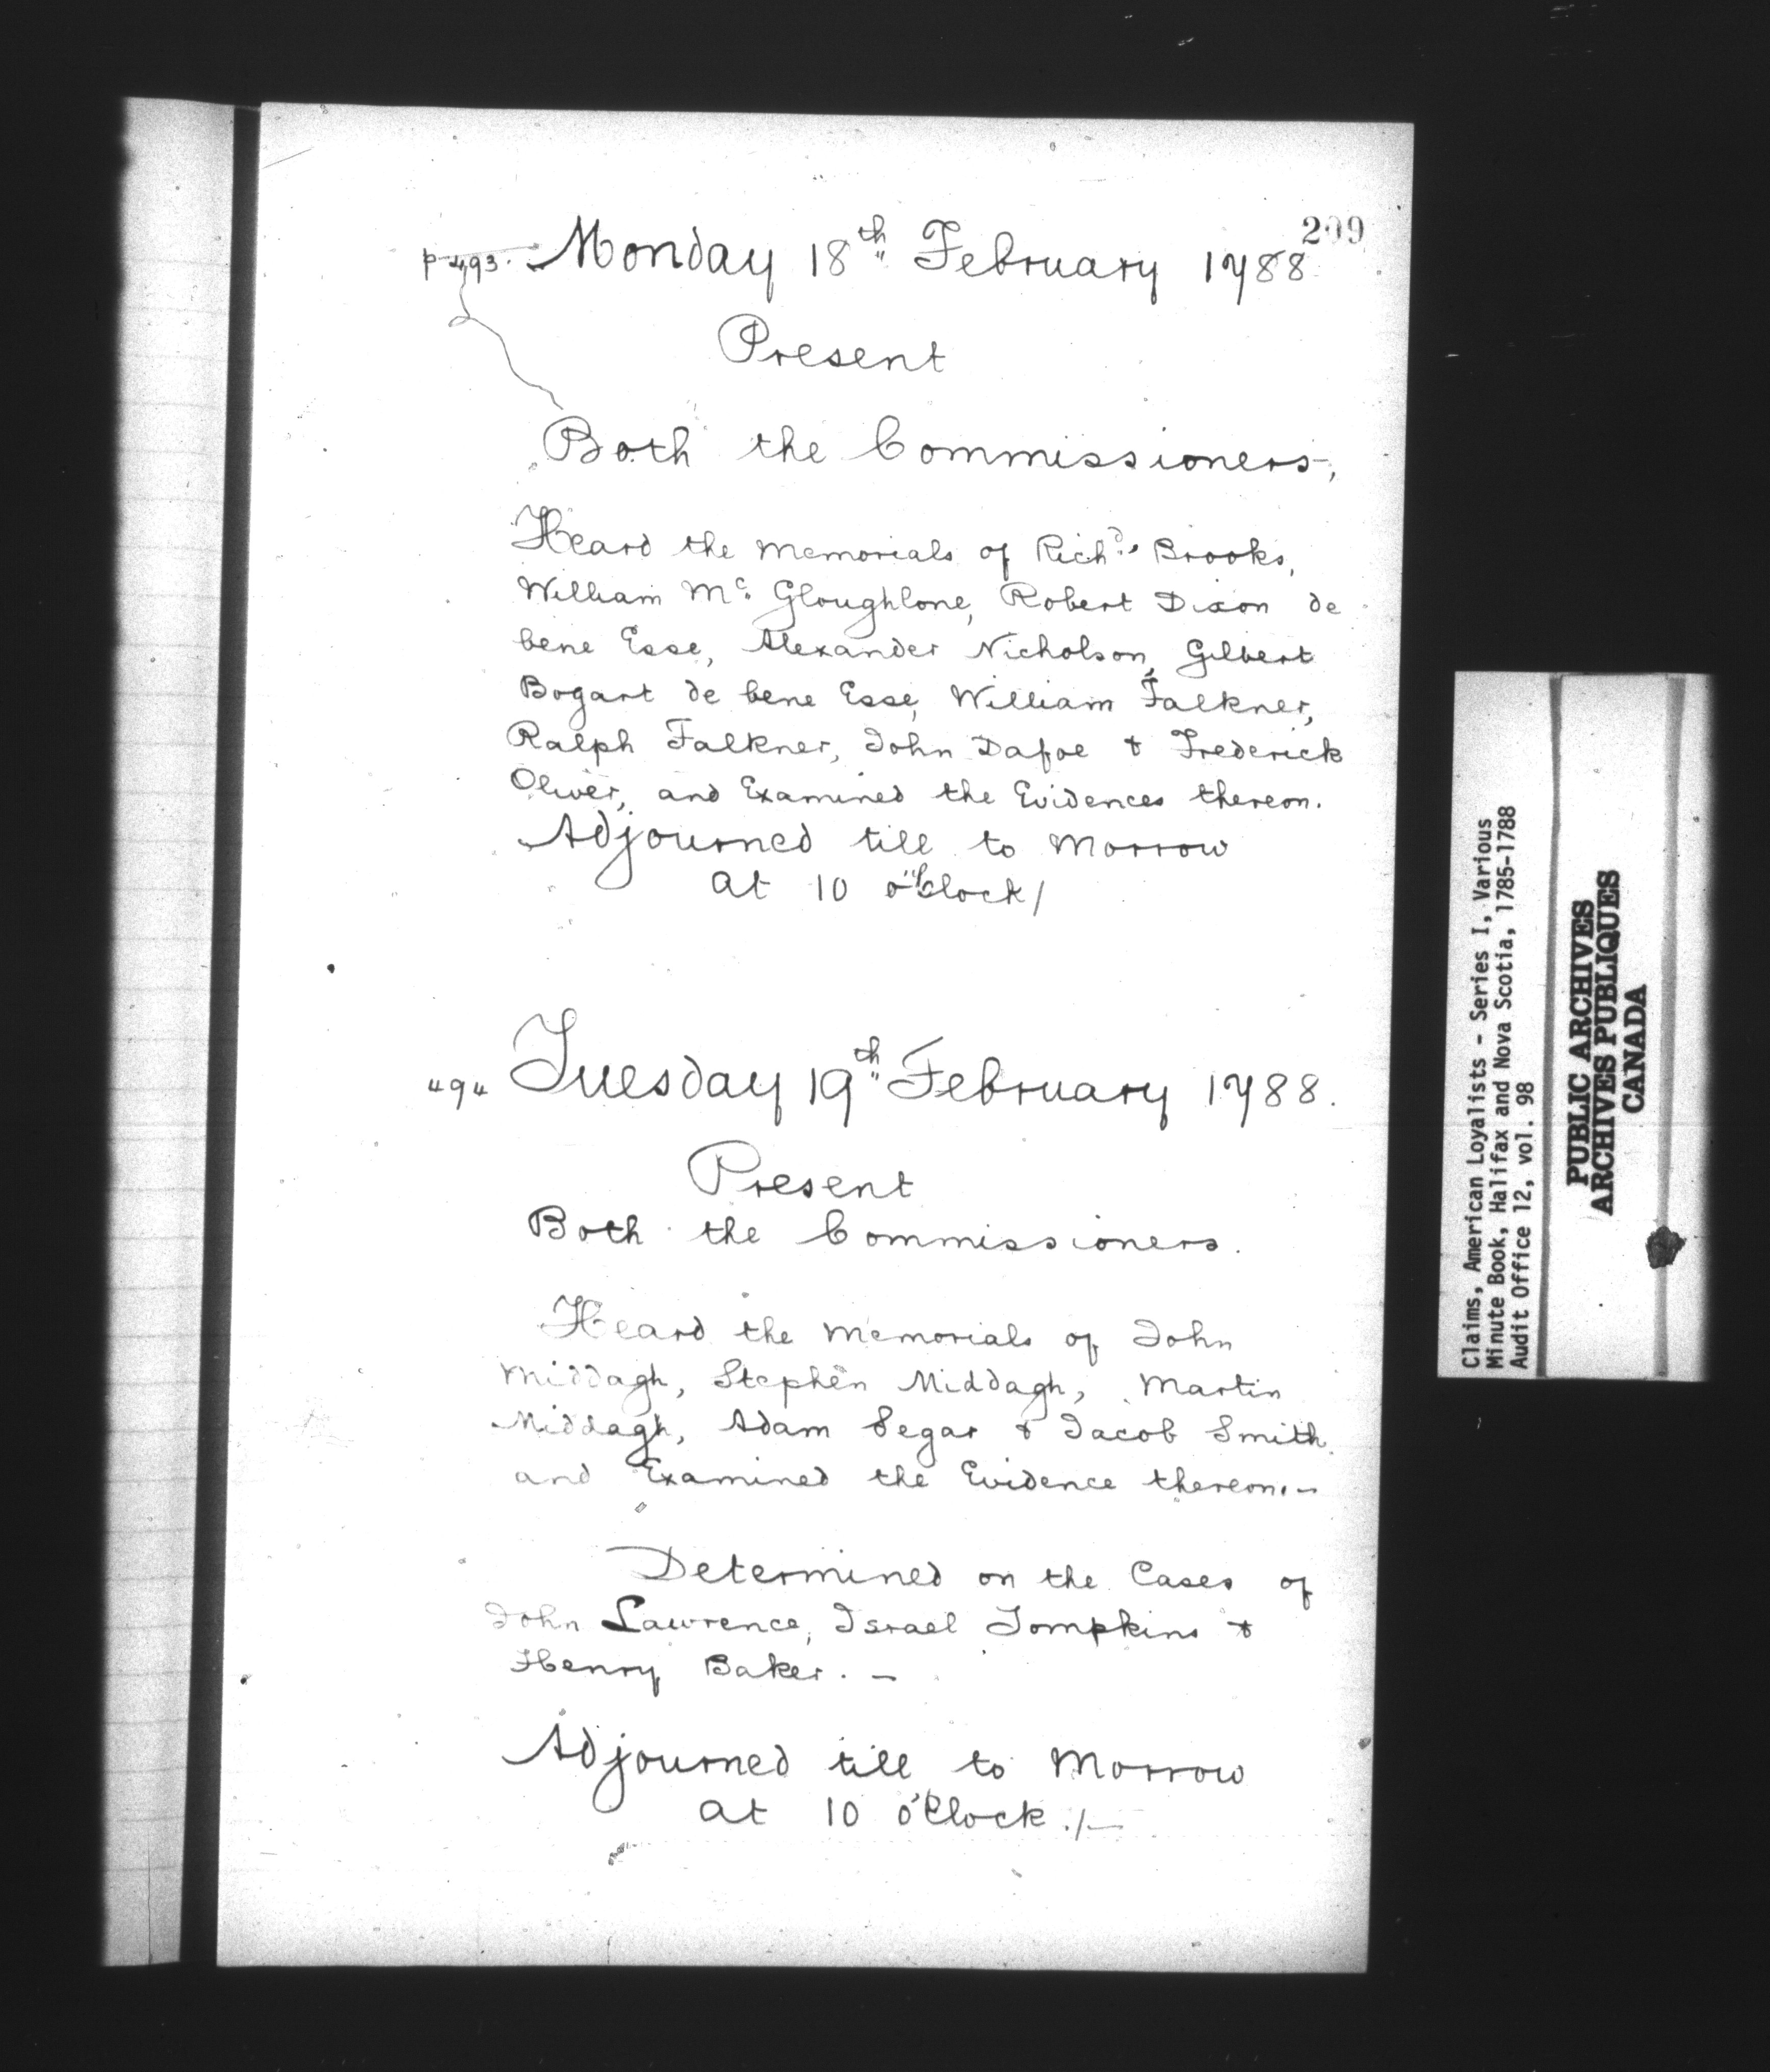 209
p 493. Monday 18th February 1788
Present
Both the Commissioners,
Heard the Memorials of Richd. Brooks,
William Mc. Gloughlone, Robert Dixon de
bene Esse, Alexander Nicholson, Gilbert
Bogart de bene Esse, William Falkner,
Ralph Falkner, John Dafoe & Frederick
Oliver, and Examined the Evidences thereon.
Adjourned till to Morrow
at 10 o'Clock/
"9" Tuesday 19th February 1788.
Present
Both the Commissioners.
Heard the Memorials of John
Middagh, Stephen Middagh, Martin
Middagh, Adam Segar & Jacob Smith
and Examined the Evidence thereon.-
Determined on the Cases of
John Lawrence, Israel Tompkins &
Henry Baker. -
Adjourned till to Morrow
at 10 o'Clock./-
Claims, American Loyalists - Series I, Various
Minute Book, Halifax and Nova Scotia, 1785-1788
Audit Office 12, vol. 98
PUBLIC ARCHIVES
ARCHIVES PUBLIQUES
CANADA